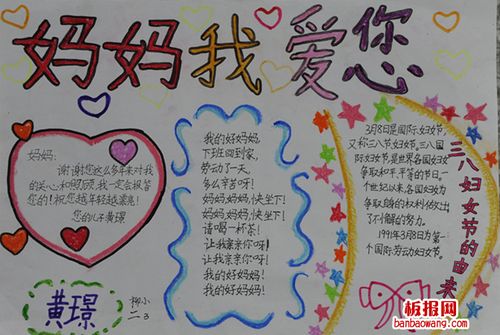 妈妈我爱您
妈妈:
谢谢您这么多年来对我
的关心和照顾,我一定会报答
您的!祝您越年轻越漂亮!
您的儿子黄璟
我的好妈妈,
下班回到家,
劳动了一天,
多么辛苦呀!
妈妈妈妈,快坐下!
妈妈妈妈,快坐下!
请喝一杯茶!
让我亲亲你呀!
让我亲亲你呀!
我的好妈妈!
我的好妈妈!
3月8日是国际妇女节,
又称三八节妇女节。三八国
际妇女节,是世界各国妇女
争取和平、平等的节日。一
个世纪以来,各国妇女为
争取的权利做出
了不懈的努力。
1991年3月8日为第一
个国际劳动妇女节。
三八妇女节的由来
黄璟
柳小
二3
板报网
banbaowang.com